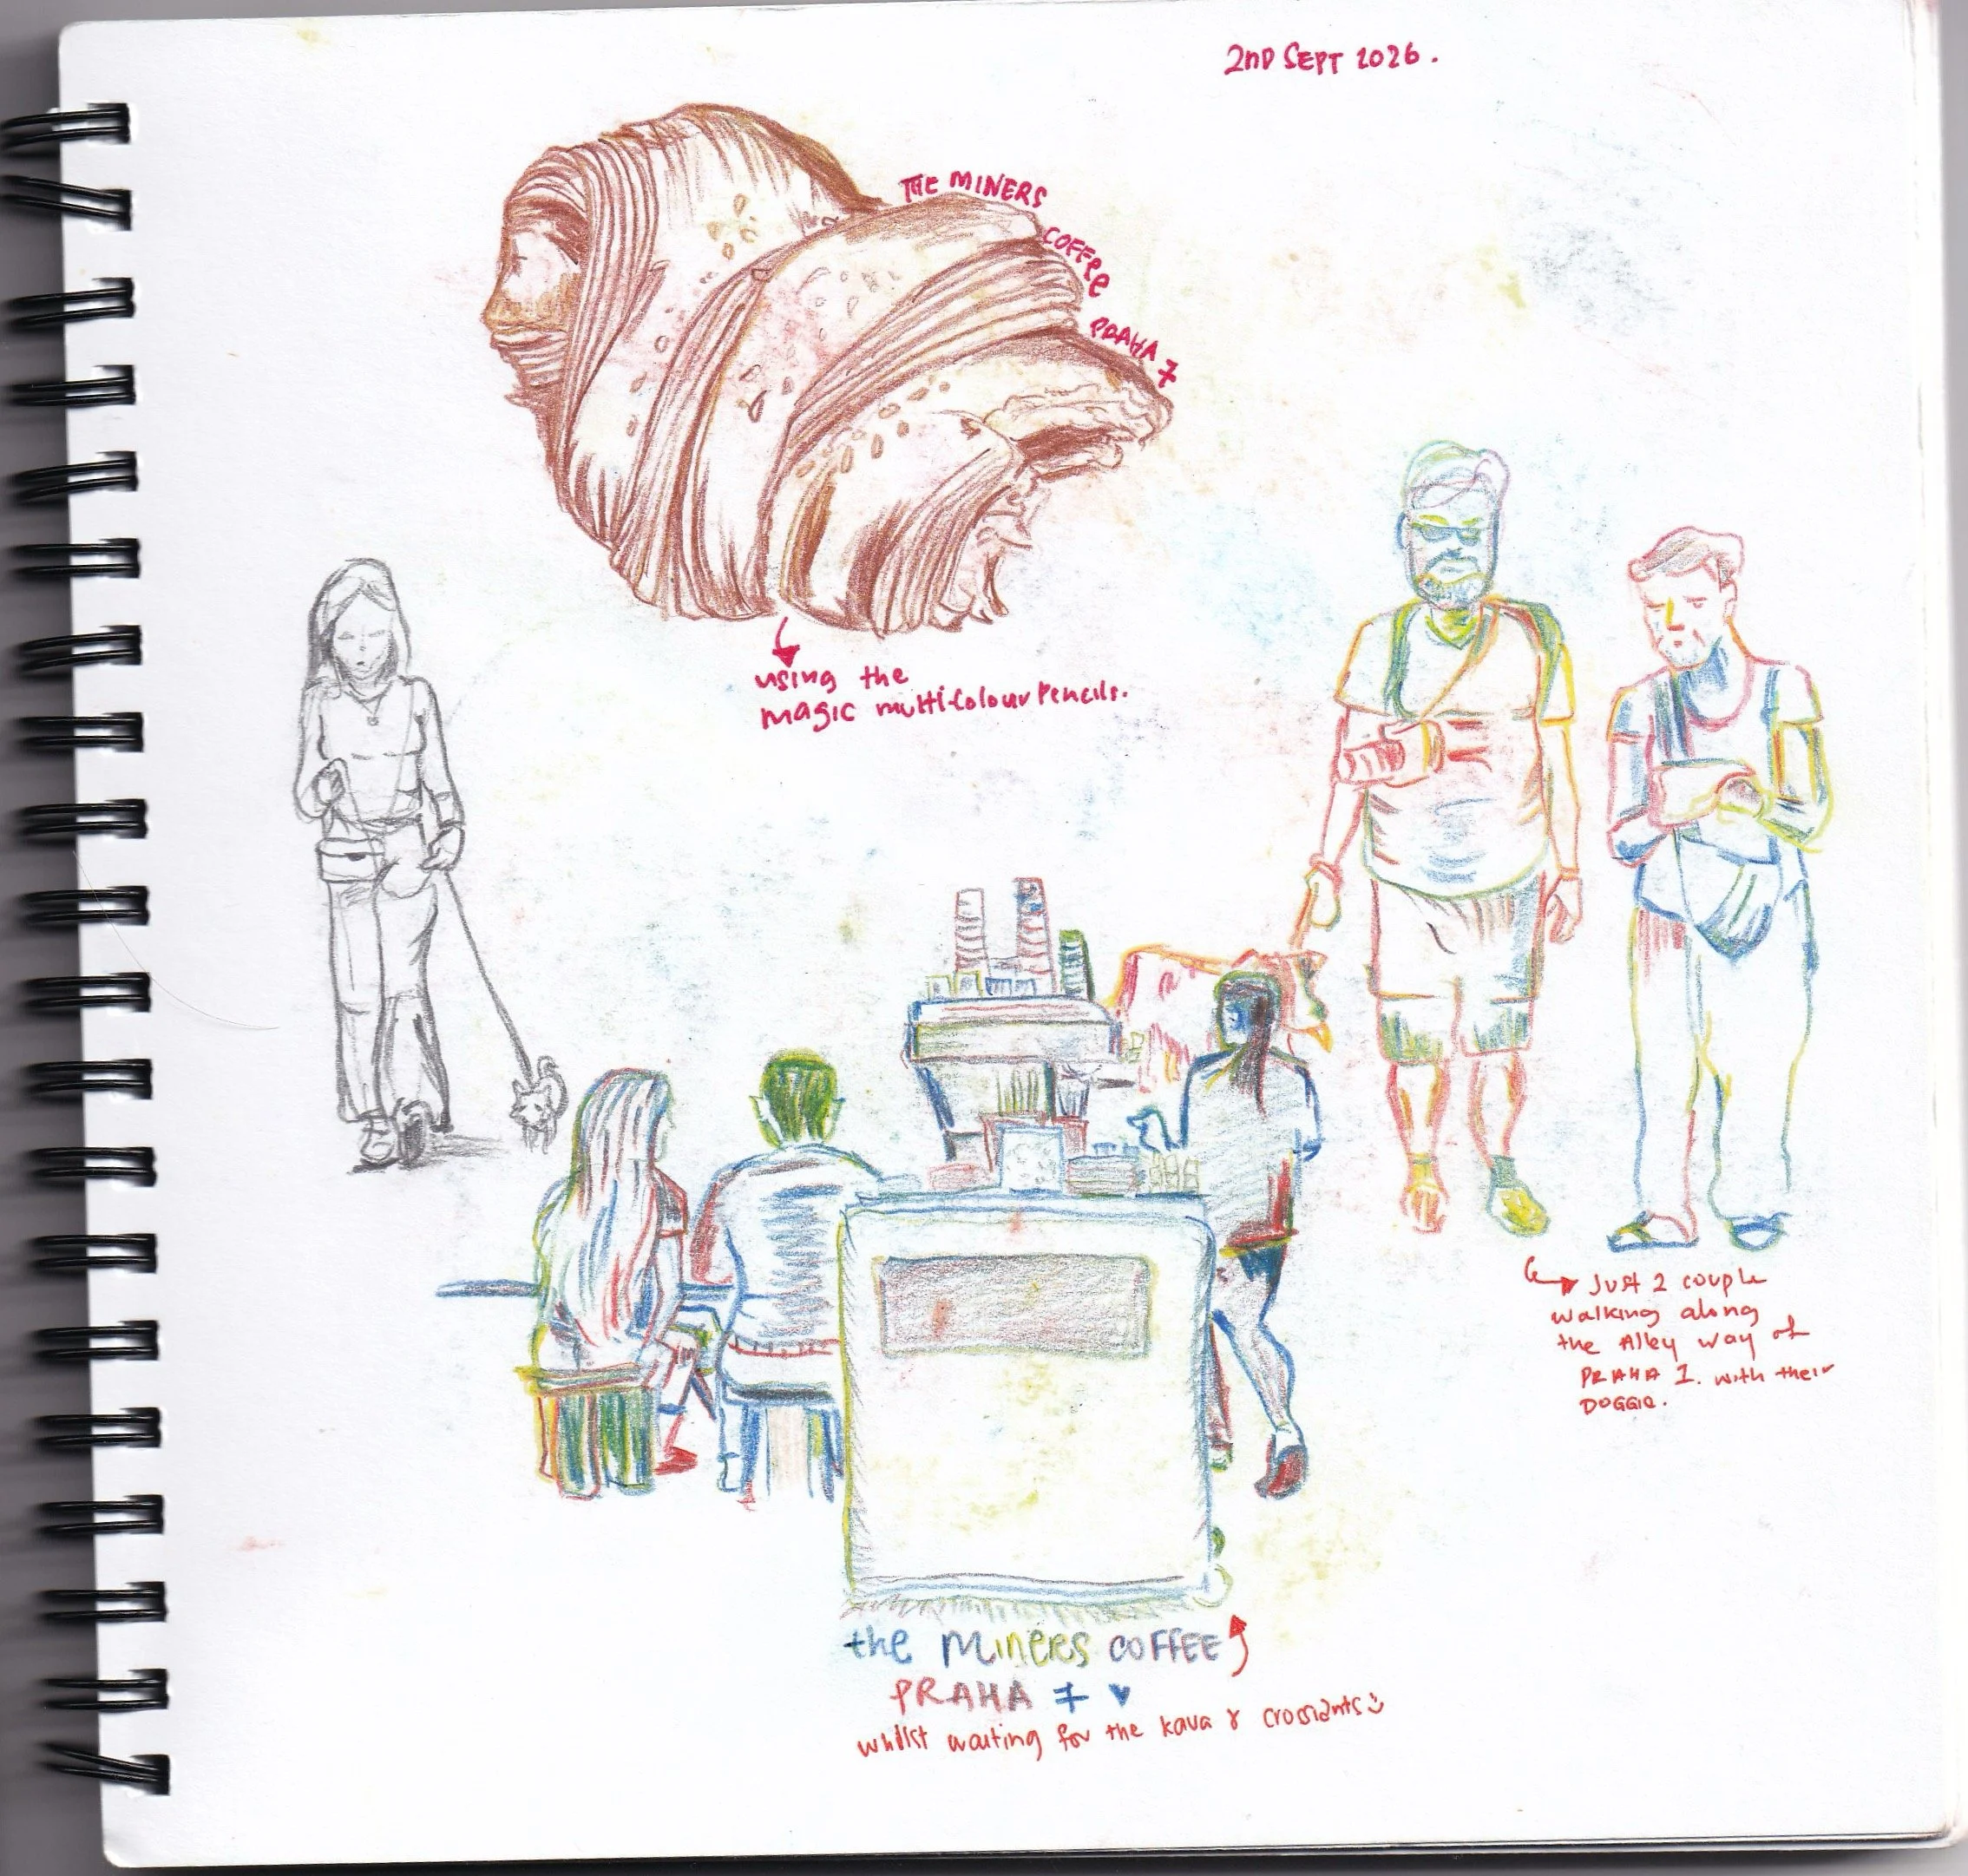 2ND SEPT 2026.
THE MINERS
COFFEE
PRAHA 7
using the
magic multi-colour Pencils.
Just 2 couple
walking along
the Alley way of
PRAHA 1. with their
DOGGIE.
the Miners COFFEE
PRAHA 7 ♥
whilst waiting for the kava & crossiants :)